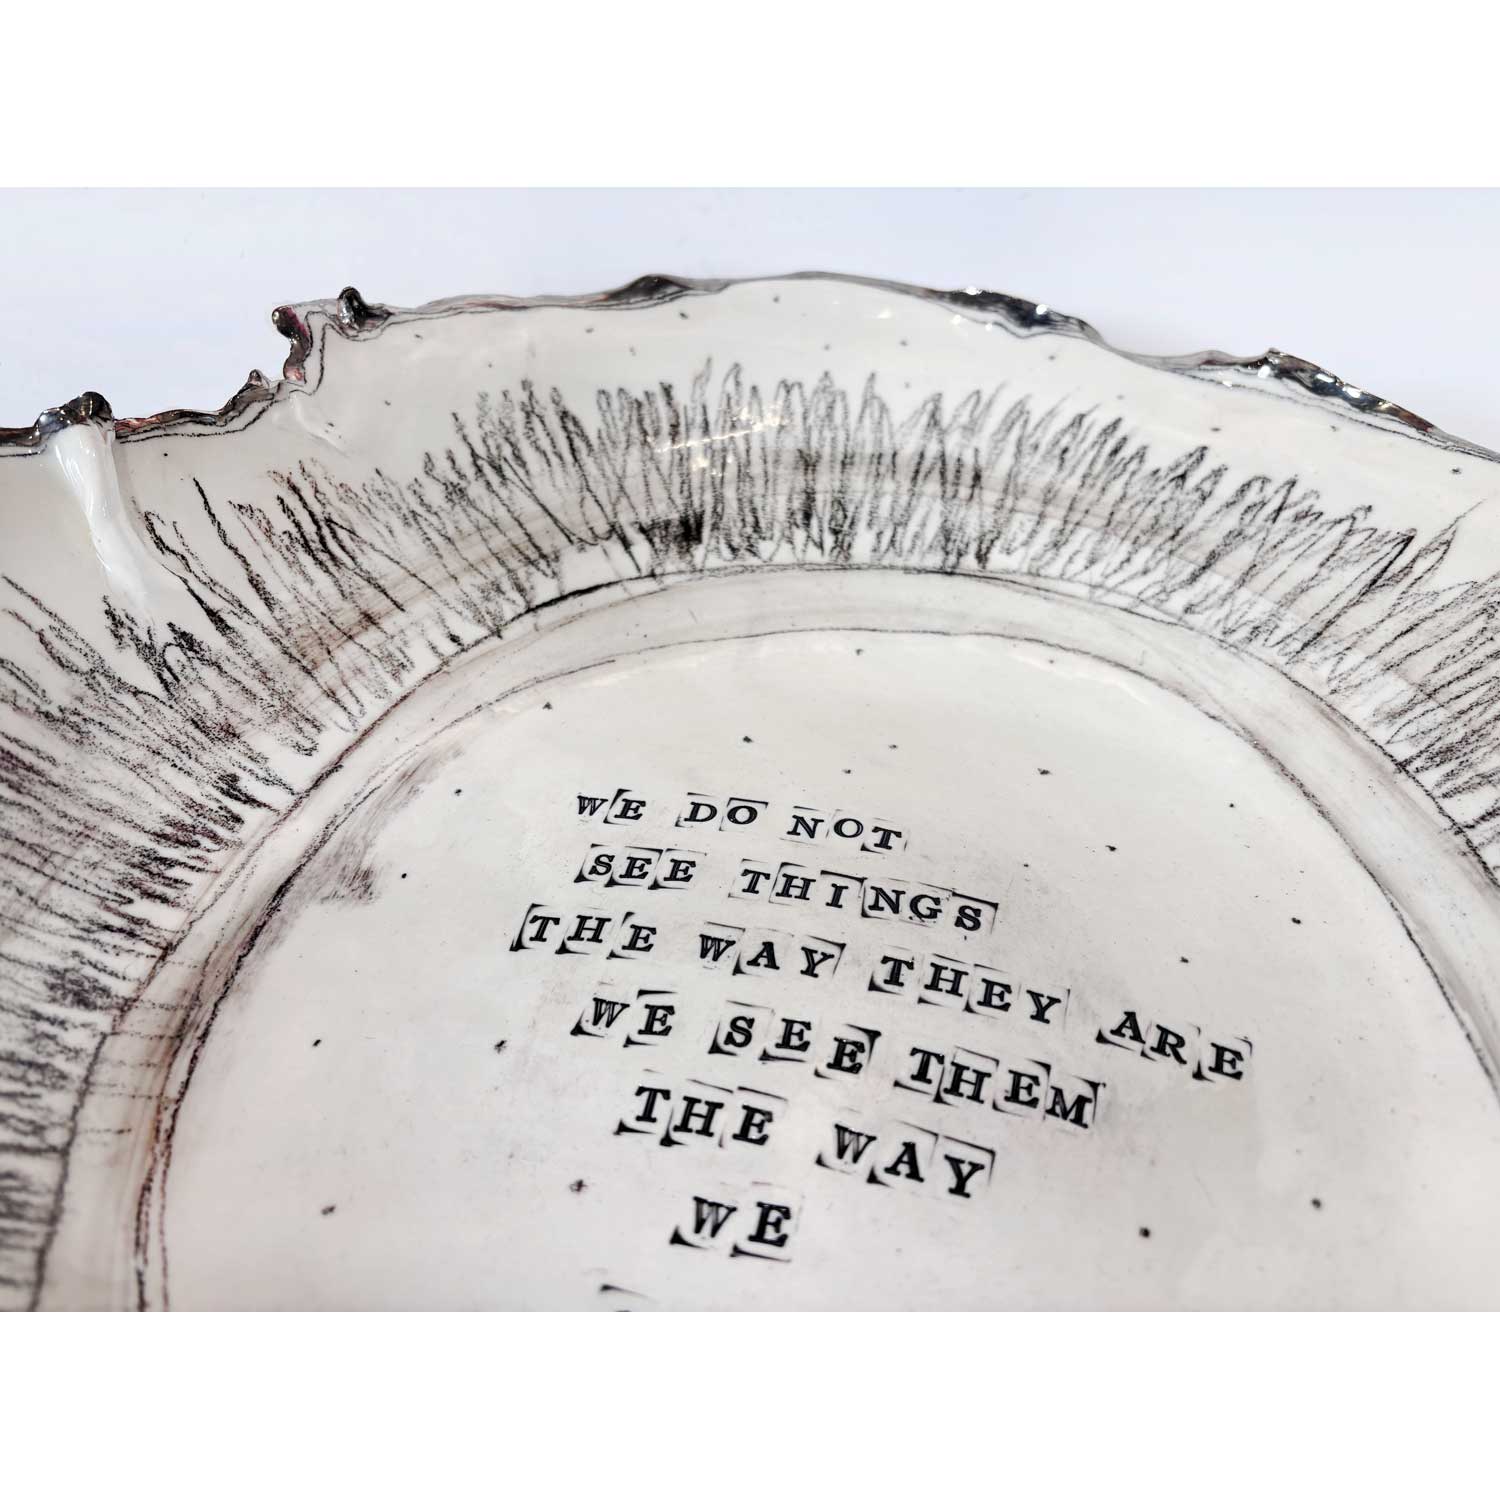 WE DO NOT
SEE THINGS
THE WAY THEY ARE
WE SEE THEM
THE WAY
WE